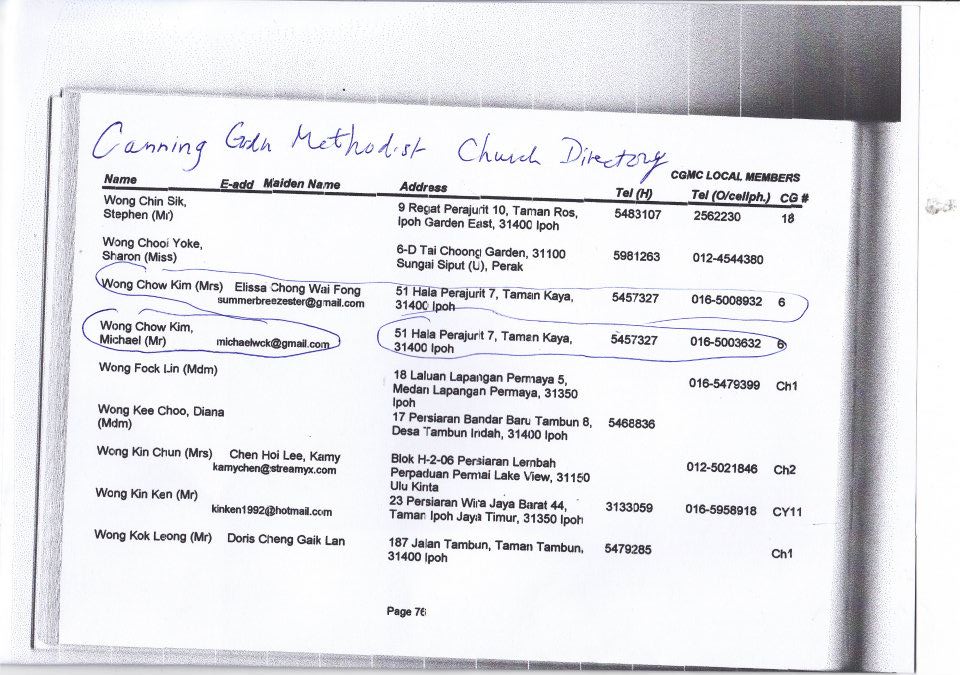 Canning Gdn Methodist Church Directory
CGMC LOCAL MEMBERS
Name E-add Maiden Name Address Tel (H) Tel (O/cellph.) CG #
Wong Chin Sik, 9 Regat Perajurit 10, Taman Ros, 5483107 2562230 18
Stephen (Mr) Ipoh Garden East, 31400 Ipoh
Wong Chooi Yoke, 6-D Tai Choong Garden, 31100 5981263 012-4544380
Sharon (Miss) Sungai Siput (U), Perak
Wong Chow Kim (Mrs) Elissa Chong Wai Fong 51 Hala Perajurit 7, Taman Kaya, 5457327 016-5008932 6
summerbreezester@gmail.com 31400 Ipoh
Wong Chow Kim, 51 Hala Perajurit 7, Taman Kaya, 5457327 016-5003632 6
Michael (Mr) michaelwck@gmail.com 31400 Ipoh
Wong Fock Lin (Mdm) 18 Laluan Lapangan Permaya 5, 016-5479399 Ch1
Medan Lapangan Permaya, 31350
Ipoh
Wong Kee Choo, Diana 17 Persiaran Bandar Baru Tambun 8, 5468836
(Mdm) Desa Tambun Indah, 31400 Ipoh
Wong Kin Chun (Mrs) Chen Hoi Lee, Kamy Blok H-2-06 Persiaran Lembah 012-5021846 Ch2
kamychen@streamyx.com Perpaduan Permai Lake View, 31150
Ulu Kinta
Wong Kin Ken (Mr) 23 Persiaran Wira Jaya Barat 44, 3133059 016-5958918 CY11
kinken1992@hotmail.com Taman Ipoh Jaya Timur, 31350 Ipoh
Wong Kok Leong (Mr) Doris Cheng Gaik Lan 187 Jalan Tambun, Taman Tambun, 5479285 Ch1
31400 Ipoh
Page 76